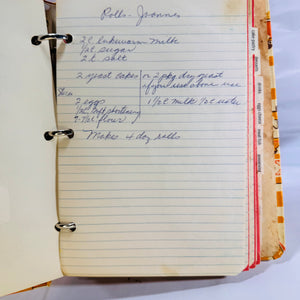 Rolls - Joannes
2 C lukewarm milk
1/2 C sugar
2 t salt
2 yeast cakes
or 2 pkg dry yeast
if you use above use
1 1/2 C milk 1/2 C water
2 eggs
1/2 C soft shortening
7-7 1/2 C flour
Makes 4 doz rolls